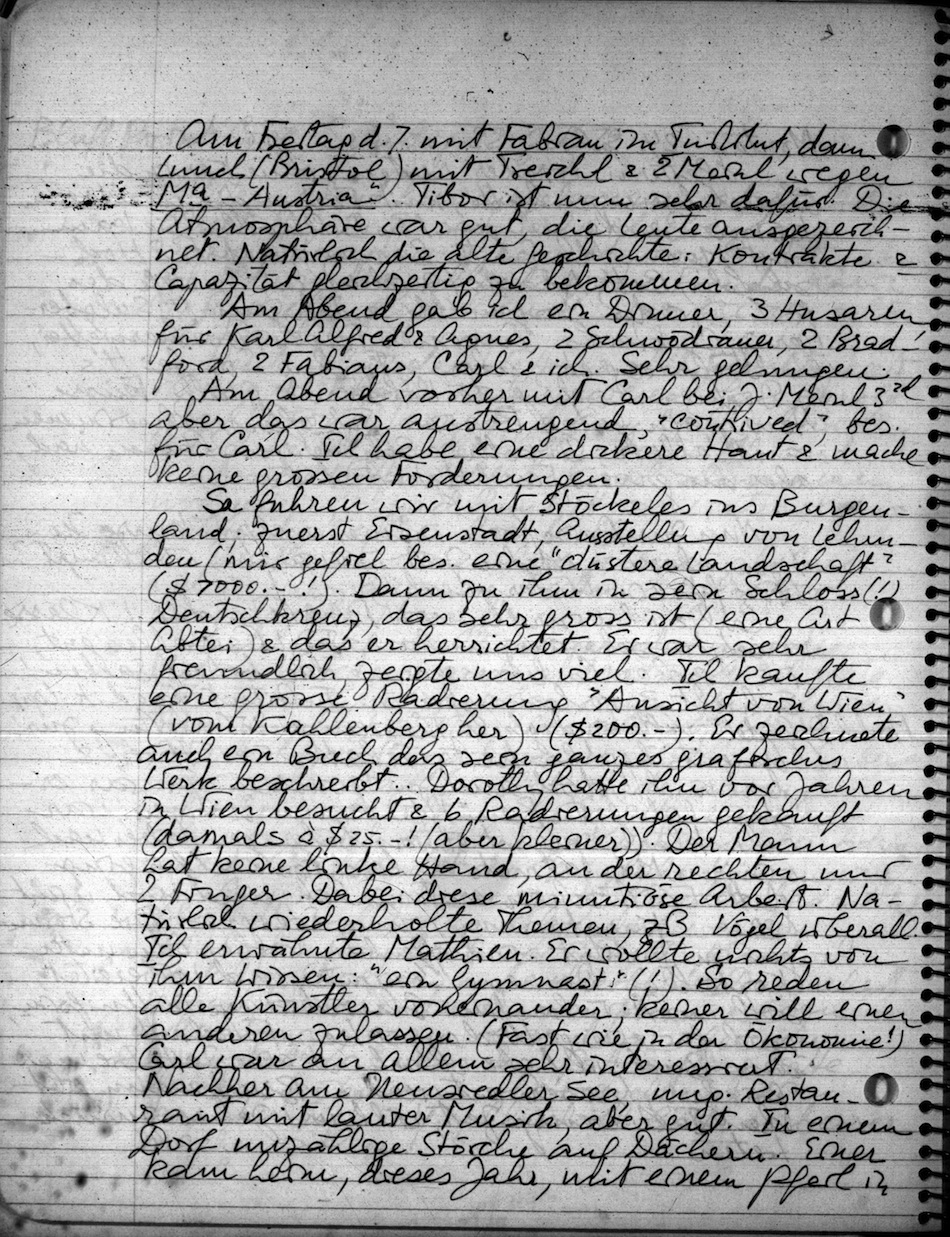 Am Freitag d. 7. mit Fabian im Institut, dann
Lunch (Bristol) mit Treichl & 2 Meinl wegen
Ma - Austria". Tibor ist nun sehr dafür. Die
Atmosphäre war gut, die Leute ausgezeich-
net. Natürlich die alte Geschichte: Kontrakte &
Capazität gleichzeitig zu bekommen.
Am Abend gab ich ein Dinner, 3 Husaren
für Karl Alfred & Agnes, 2 2 Brad-
ford, 2 Fabians, Carl & ich. Sehr gelungen.
Am Abend vorher mit Carl bei J. Meinl 3rd
aber das war anstrengend, "contrived", bes.
für Carl. Ich habe eine dickere Haut & mache
keine grossen Forderungen.
Sa fuhren wir mit Stöckeles ins Burgen-
land, zuerst Eisenstadt, Ausstellung von Lehm-
den (mir gefiel bes. eine "düstere Landschaft"
($7000.-!). Dann zu ihm in sein Schloss (!)
Deutschkreuz, das sehr gross ist (eine Art
Abtei) & das er herrichtet. Er war sehr
freundlich, zeigte uns viel. Ich kaufte
eine grosse Radierung "Ansicht von Wien"
(vom Kahlenberg her) ($200.-). Er zeichnete
auch ein Buch das sein ganzes grafisches
Werk beschreibt.. Dorothy hatte ihn vor Jahren
in Wien besucht & 6 Radierungen gekauft
(damals à $25.-! (aber kleiner)). Der Mann
hat keine linke Hand, an der rechten nur
2 Finger. Dabei diese minutiöse Arbeit. Na-
türlich wiederholte Themen, zB Vögel überall.
Ich erwähnte Mathieu. Er wollte nichts von
ihm wissen: "ein Gymnast" (!). So reden
alle Künstler voneinander; keiner will einen
anderen zulassen. (Fast wie in der Ökonomie!)
Carl war an allem sehr interessiert.
Nachher am Neusiedler See, ung. Restau-
rant mit lauter Musik, aber gut. In einem
Dorf unzählige Störche auf Dächern. Einer
kam heim, dieses Jahr, mit einem Pfeil in